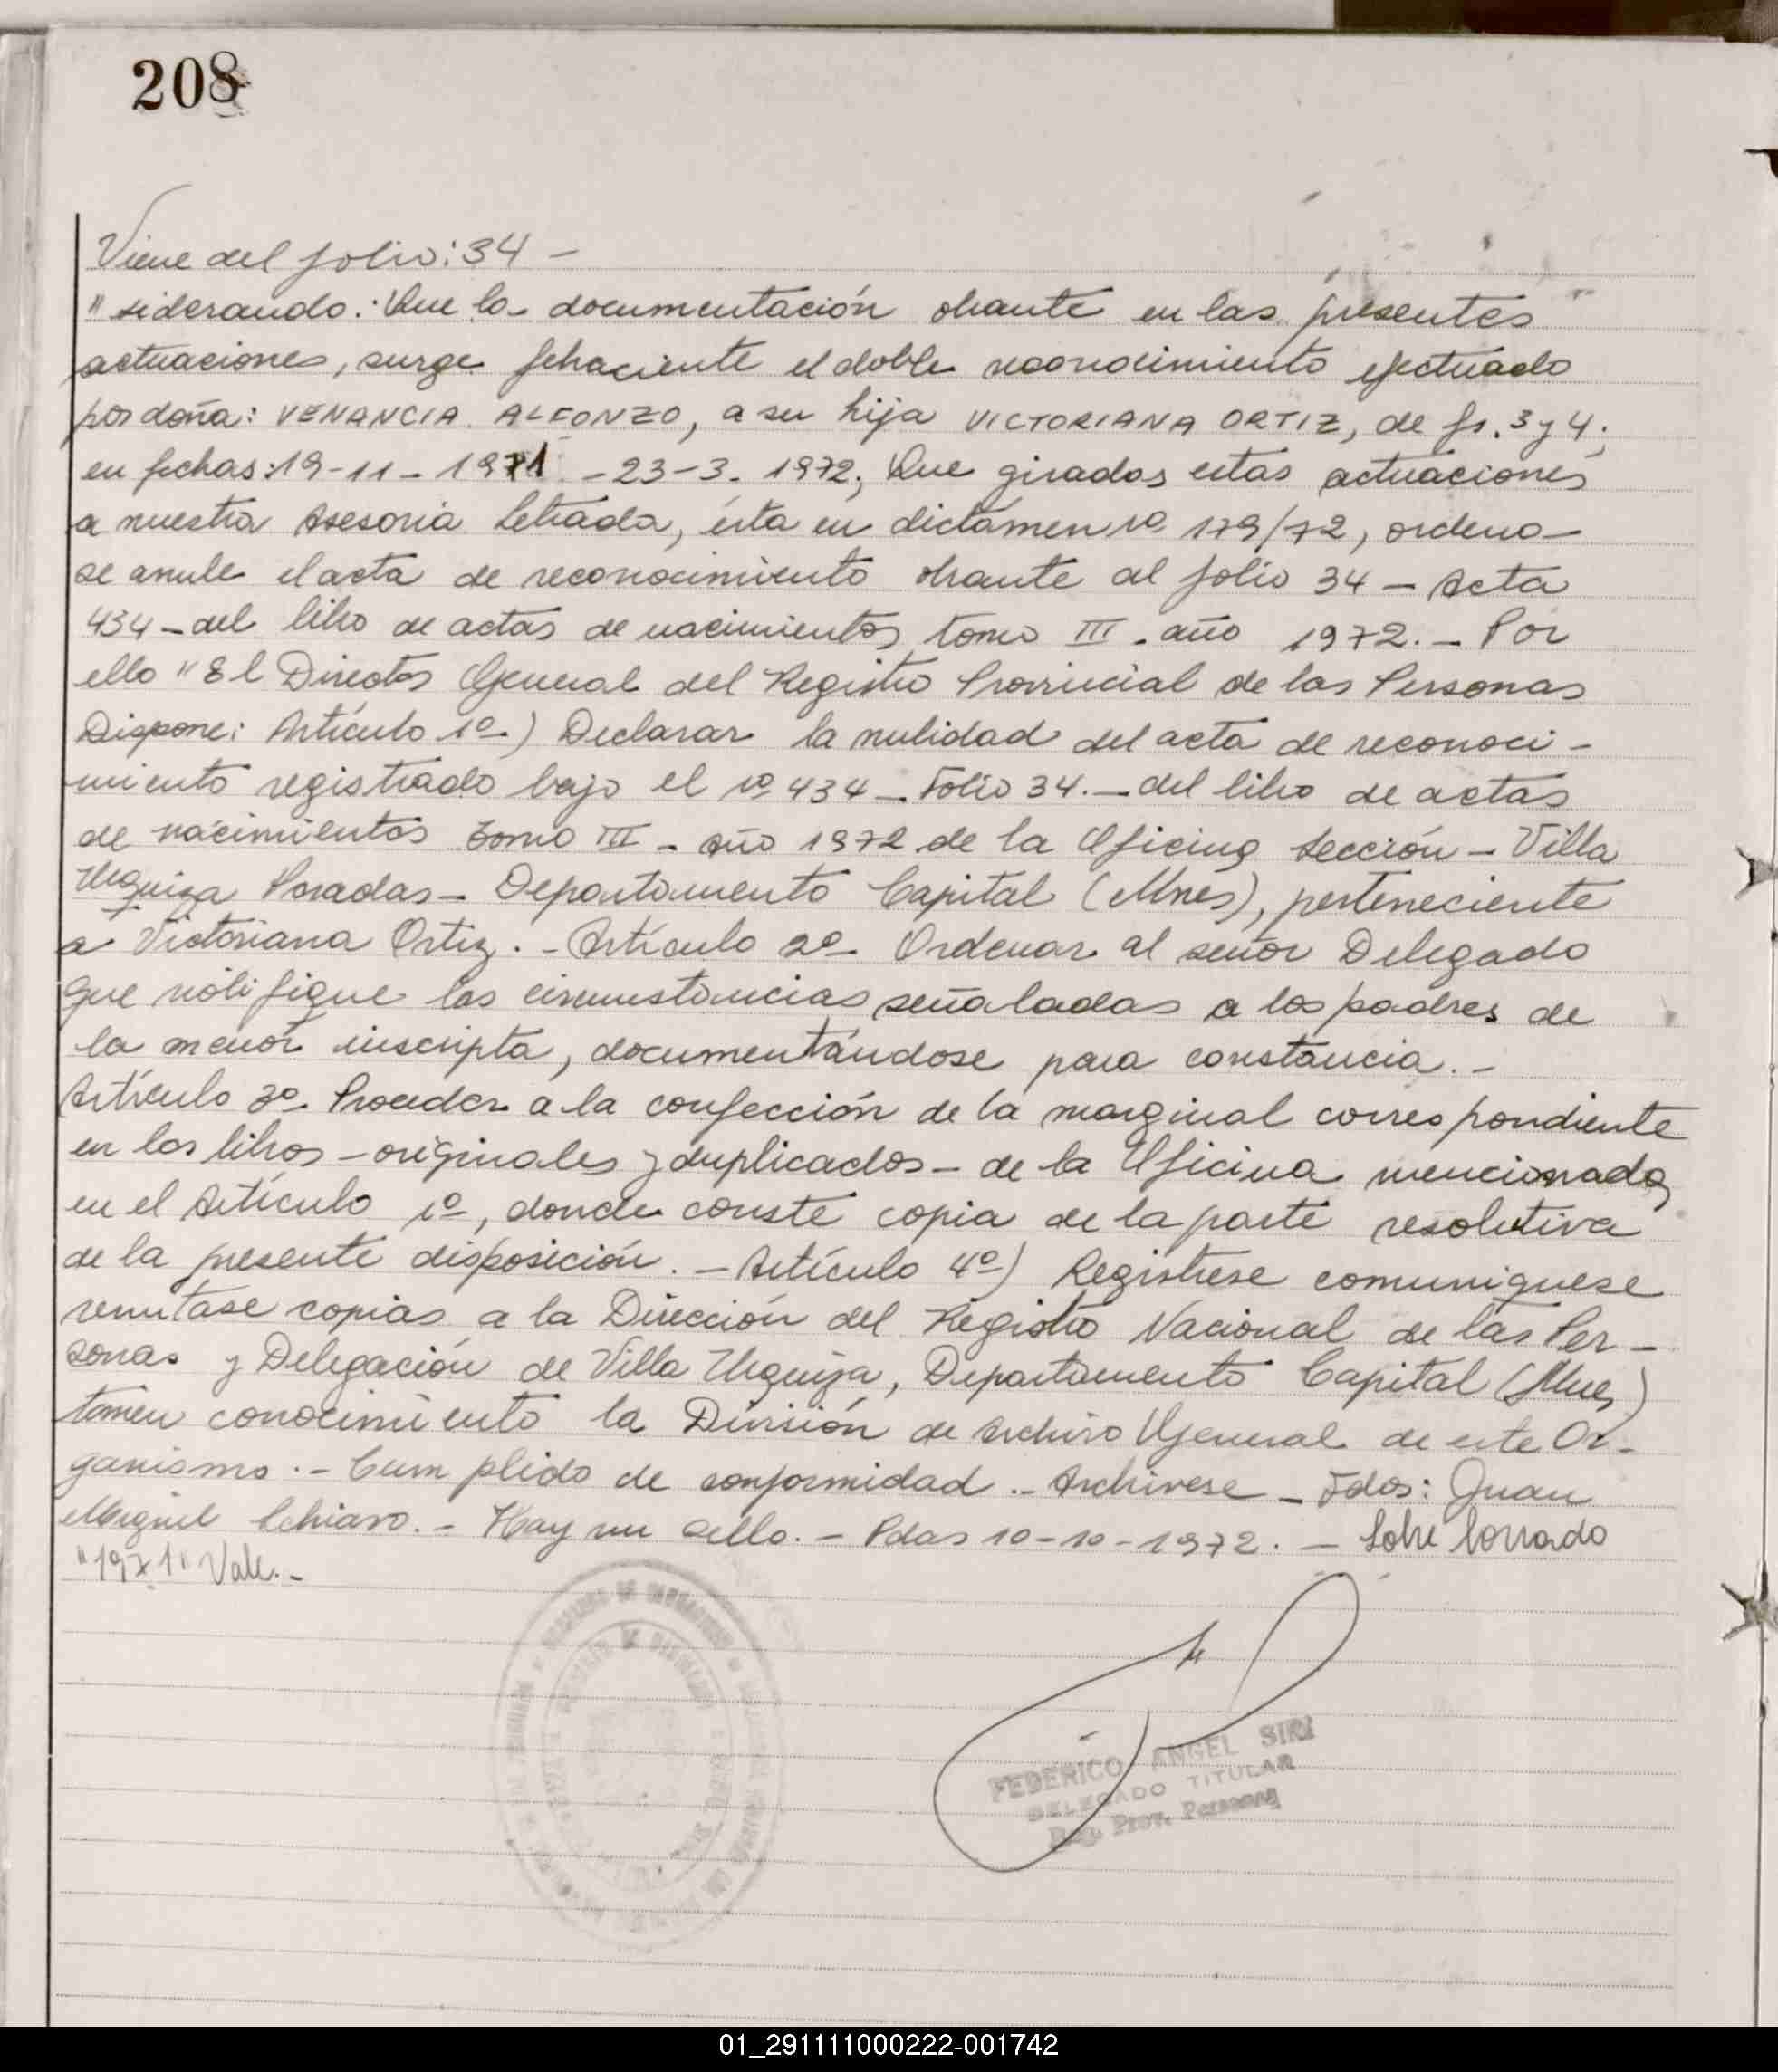 208
Viene del folio: 34 -
"siderando: Que la documentación obrante en las presentes
actuaciones, surge fehaciente el doble reconocimiento efectuado
por doña: VENANCIA ALFONZO, a su hija VICTORIANA ORTIZ, de fs. 3 y 4;
en fechas: 19-11-1971 - 23-3-1972; Que giradas estas actuaciones
a nuestra Asesoria Letrada, esta en dictámen nº 179/72, ordena
se anule el acta de reconocimiento obrante al folio 34 - Acta
434 - del libro de actas de nacimientos tomo III - año 1972. - Por
ello "El Director General del Registro Provincial de las Personas
Dispone: Artículo 1º) Declarar la nulidad del acta de reconoci-
miento registrado bajo el nº 434 - Folio 34. - del libro de actas
de nacimientos tomo III - año 1972 de la Oficina Sección - Villa
Urquiza Posadas - Departamento Capital (Mnes), perteneciente
a Victoriana Ortiz. - Artículo 2º Ordenar al señor Delegado
que notifique las circunstancias señaladas a los padres de
la menor inscripta, documentándose para constancia. -
Artículo 3º Proceder a la confección de la marginal correspondiente
en los libros - originales y duplicados - de la Oficina mencionada
en el Artículo 1º, donde conste copia de la parte resolutiva
de la presente disposición. - Artículo 4º) Registrese comuniquese
remitase copias a la Dirección del Registro Nacional de las Per-
sonas y Delegación de Villa Urquiza, Departamento Capital (Mnes)
tomen conocimiento la División de Archivo General de este Or-
ganismo. - Cumplido de conformidad. - Archivese - Fdos: Juan
Miguel Schiavo. - Hay un sello. - Pdas 10-10-1972. - Sobre borrado
"1971" Vale. -
FEDERICO ANGEL SIRI
DELEGADO TITULAR
Reg. Prov. Personas
01_291111000222-001742